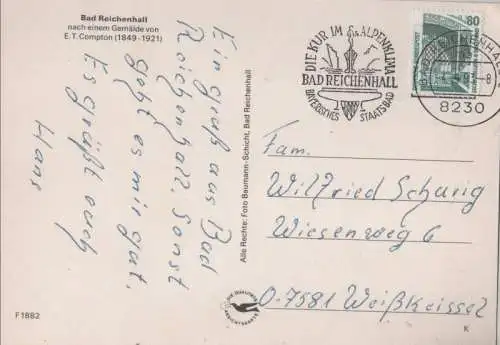 Bad Reichenhall
nach einem Gemälde von
E. T. Compton (1849-1921)
Ein gruß aus Bad
Reichenhall. Sonst
geht es mir gut.
Es grüßt euch
Hans
F 1882
Alle Rechte: Foto Baumann-Schicht, Bad Reichenhall
DIE KUR IM ALPENKLIMA
BAD REICHENHALL
BAYERISCHES STAATSBAD
80
8230
Fam.
Wilfried Schurig
Wiesenweg 6
O-7581 Weißkeissel
K